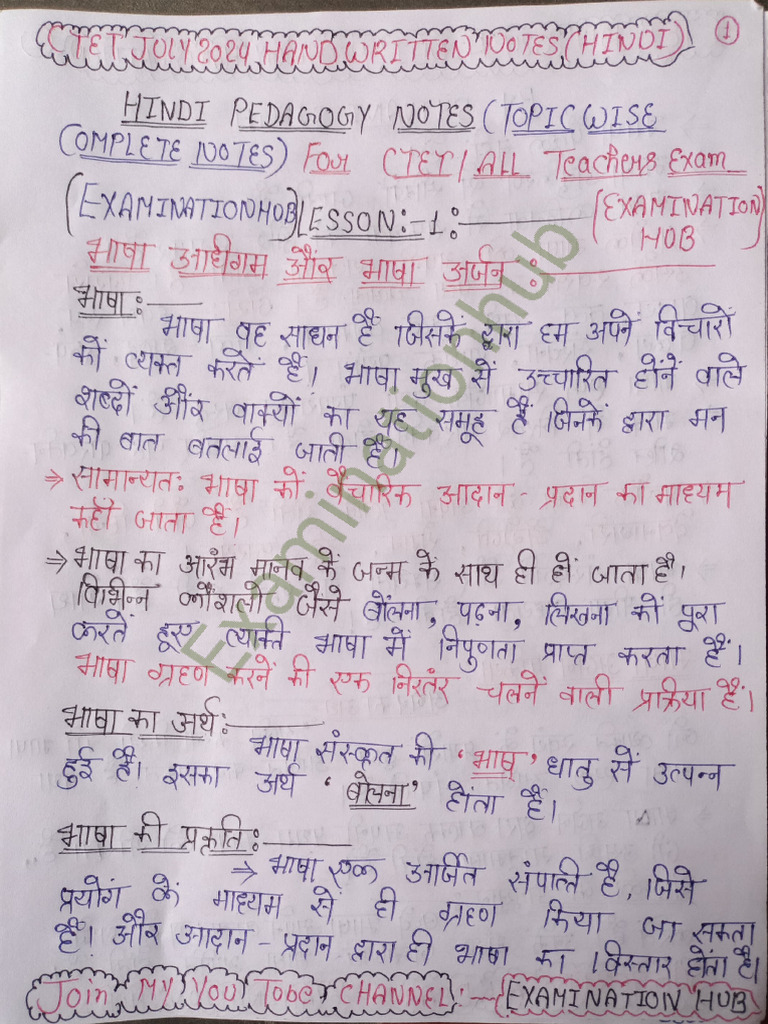 CTET JULY 2024 HAND WRITTEN NOTES (HINDI)
1
HINDI PEDAGOGY NOTES (TOPIC WISE
COMPLETE NOTES) FOR CTET/ALL Teachers Exam
(EXAMINATIONHUB) LESSON:-1:- (EXAMINATION
HUB
भाषा अधिगम और भाषा अर्जन :-
भाषा:-
भाषा वह साधन है जिसकें द्वारा हम अपनें विचारों
कों व्यक्त करतें हैं। भाषा मुख सें उच्चारित होंनें वाले
शब्दों और वाक्यों का यह समूह हैं जिनके द्वारा मन
की बात बतलाई जाती हैं।
⇒ सामान्यतः भाषा कों वैचारिक आदान - प्रदान का माध्यम
कहाँ जाता हैं।
⇒ भाषा का आरंभ मानव कें जन्म कें साथ ही हों जाता है।
विभिन्न कौंशलो जैंसे बोंलना, पढ़ना, लिखना कों पूरा
करतें हूए व्यक्ति भाषा में निपुणता प्राप्त करता हैं।
भाषा ग्रहण करनें की एक निरतंर चलनें वाली प्रक्रिया हैं।
भाषा का अर्थ:-
भाषा संस्कृत की 'भाष्' धातु सें उत्पन्न
हुई है। इसका अर्थ 'बोलना' होंता हैं।
भाषा की प्रकृति:-
⇒ भाषा एक आर्जित संपत्ति है, जिसे
प्रयोग कें माध्यम सें ही ग्रहण किया जा सकता
हैं। और आदान - प्रदान द्वारा ही भाषा का विस्तार होंता है।
Join MY YOU Tobe CHANNEL:- EXAMINATION HUB
Examinationhub